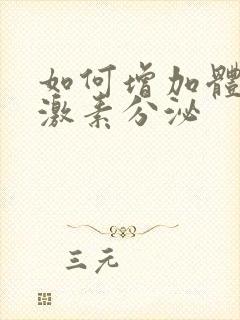 如何增加體
激素分泌
三元